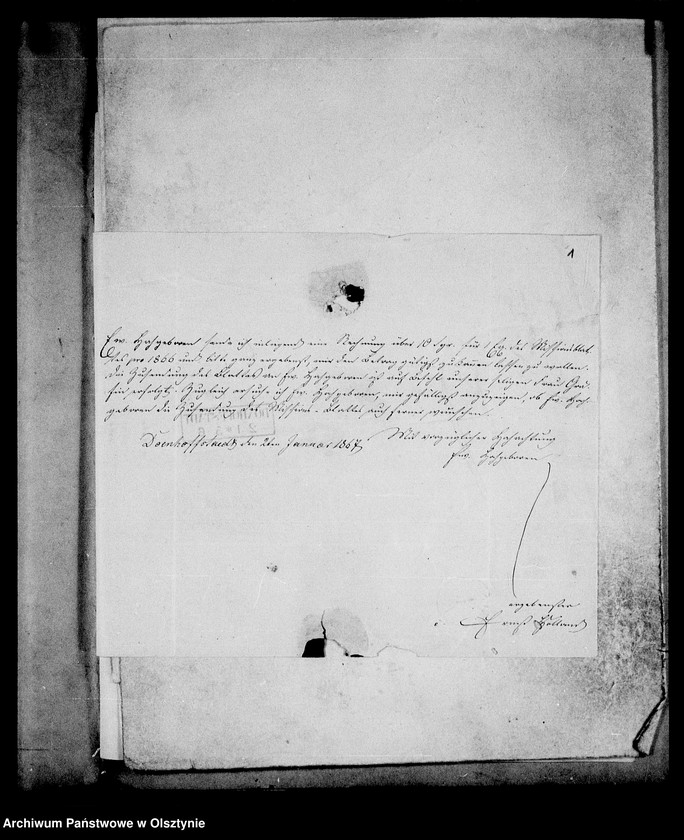 1
Ew. Hochgeboren sende ich inliegend eine Rechnung über 10 Sgr. für 1 Ex. des Missionsblat-
tes pro 1866 und bitte ganz ergebenst, mir den Betrag gütigst zukommen lassen zu wollen.
Die Zusendung des Blattes an Ew. Hochgeboren ist auf Befehl unserer seligen Frau Grä-
fin erfolgt. Zugleich ersuche ich Ew. Hochgeboren, mir gefälligst anzuzeigen, ob Ew. Hoch-
geboren die Zusendung des Missions-Blattes auch ferner wünschen.
Mit vorzüglicher Hochachtung
Doenhoffstaedt, den 2ten Januar 1867.
Ew. Hochgeboren
ergebenster
Ernst
Archiwum Państwowe w Olsztynie